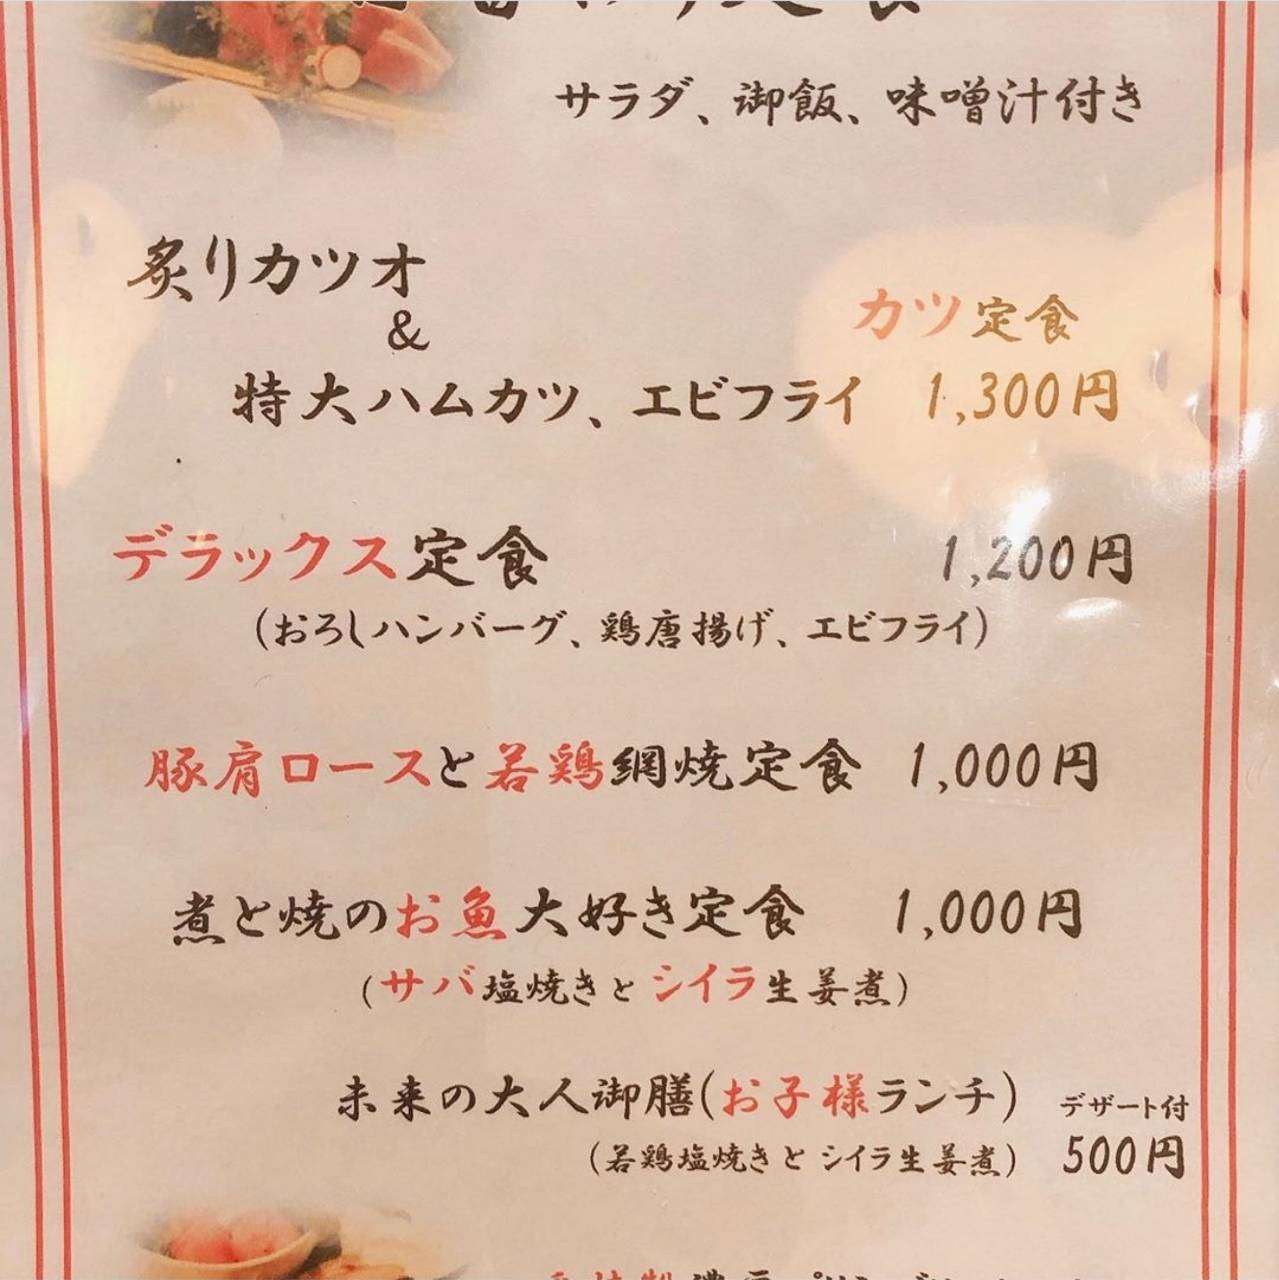 サラダ、御飯、味噌汁付き
炙りカツオ
&
カツ定食
特大ハムカツ、エビフライ 1,300円
デラックス定食 1,200円
(おろしハンバーグ、鶏唐揚げ、エビフライ)
豚肩ロースと若鶏網焼定食 1,000円
煮と焼のお魚大好き定食 1,000円
(サバ塩焼きとシイラ生姜煮)
未来の大人御膳(お子様ランチ) デザート付
(若鶏塩焼きとシイラ生姜煮) 500円